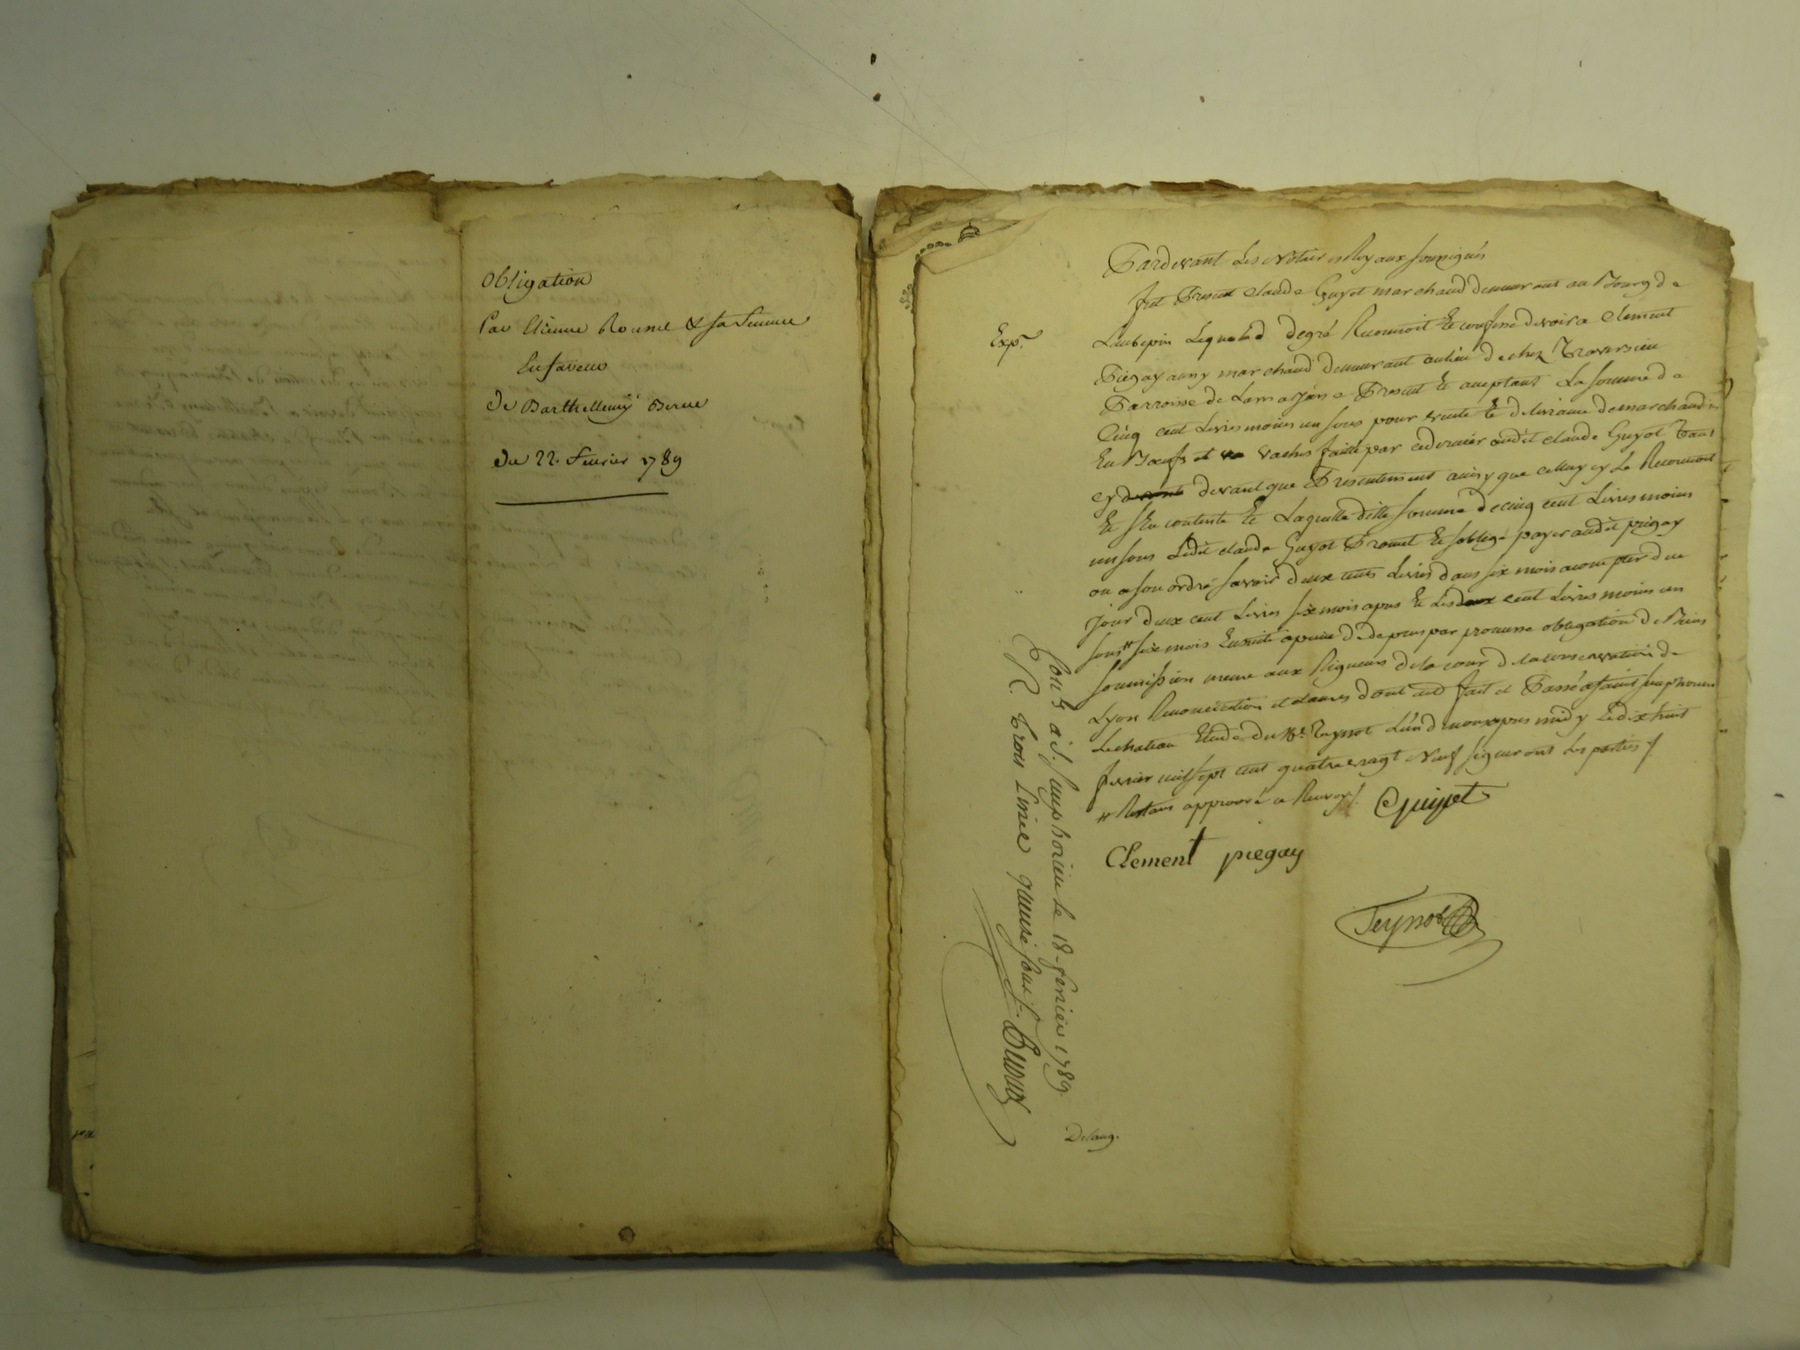 Obligation
Par Etienne & sa femme
En faveur
De Barthellemy
Du 22. fevrier 1789
Exp.
Pardevant Les Notaires Royaux soussignés
fut Present Claude Guyot marchand demeurant au Bourg de
Laubepin Lequel de gré Reconnoit et confesse devoir a Clement
Piegay marchand demeurant au lieu de chez Traversieu
Parroisse de Larajasse Present et aceptant La somme de
Cinq cent Livres moins un sous pour vente et delivrance de marchandise
En Bœufs et vaches faitte par ce dernier audit Claude Guyot Tant
cy devant que Presentement ainsy que celluy cy Le Reconnoit
Et s'en contente et Laquelle ditte somme de cinq cent Livres moins
un sous Ledit Claude Guyot Promet et s'oblige payer audit piegay
ou a son ordre savoir deux cents Livres dans six mois a compter de ce
jour deux cent Livres six mois apres et Les cent Livres moins un
sous # six mois Ensuitte a peine de depens par promesse obligation de Biens
soumission meme aux Rigueurs de la cour de la conservation de
Lyon Renonciation et clauses dont acte fait et Passé a Saint simphorien
Le chateau Etude du Me Teyssot L'un de nous apres midy Le dix huit
fevrier mil sept cent quatre vingt Neuf signeront Les parties /
# Restans approuvé ce Renvoy /. Guyot
Clement piegay
Teyssot
Con. à S. simphorien le 18. fevrier 1789
R. trois Livres quinze sous /.